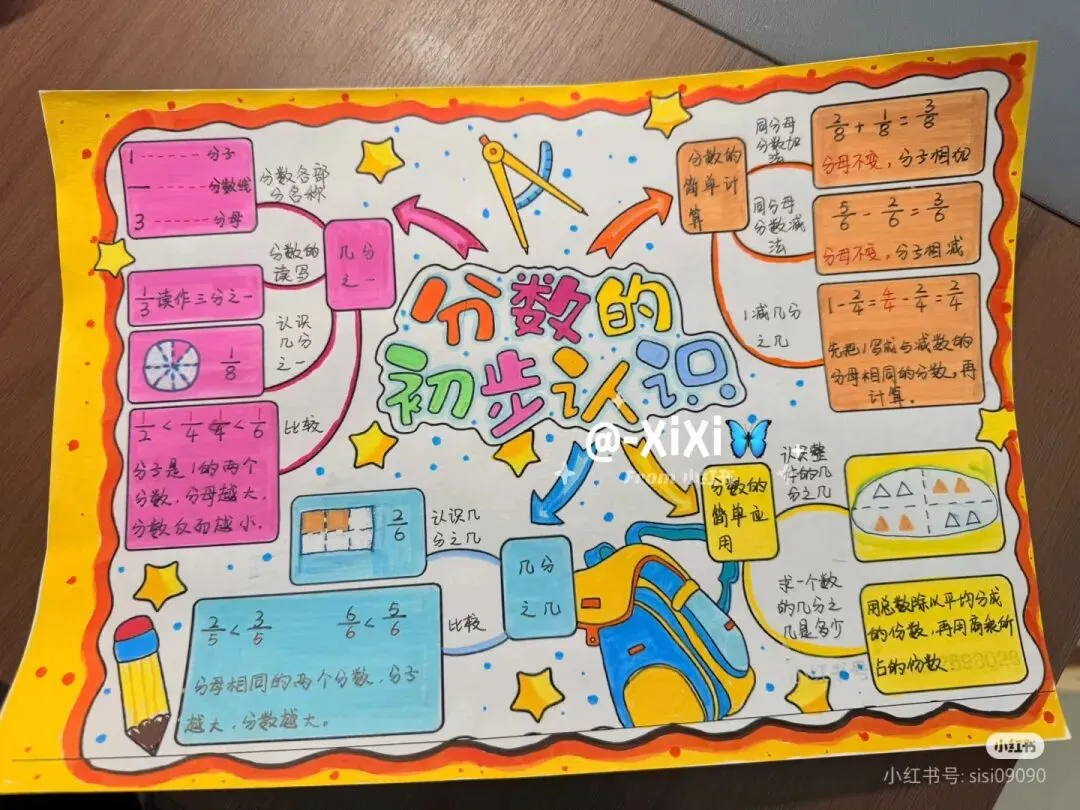 分数的
初步认识
@-XiXi
From 小红书
1 分子
— 分数线
3 分母
分数各部
分名称
几分
之一
分数的
读写
1/3读作三分之一
认识
几分
之一
1/8
比较
1/2 < 1/4 1/4 < 1/6
分子是1的两个
分数,分母越大,
分数反而越小.
分数的
简单计
算
同分母
分数加
法
2/8 + 1/8 = 3/8
分母不变,分子相加
同分母
分数减
法
5/6 - 2/6 = 3/6
分母不变,分子相减
1减几分
之几
1 - 2/4 = 4/4 - 2/4 = 2/4
先把1写成与减数的
分母相同的分数,再
计算。
2/6
认识几
分之几
几分
之几
比较
2/5 < 3/5 6/6 < 5/6
分母相同的两个分数,分子
越大,分数越大。
分数的
简单应
用
认识整
体的几
分之几
求一个数
的几分之
几是多少
用总数除以平均分成
的份数,再用商乘所
占的份数
小红书
小红书号: sisi09090